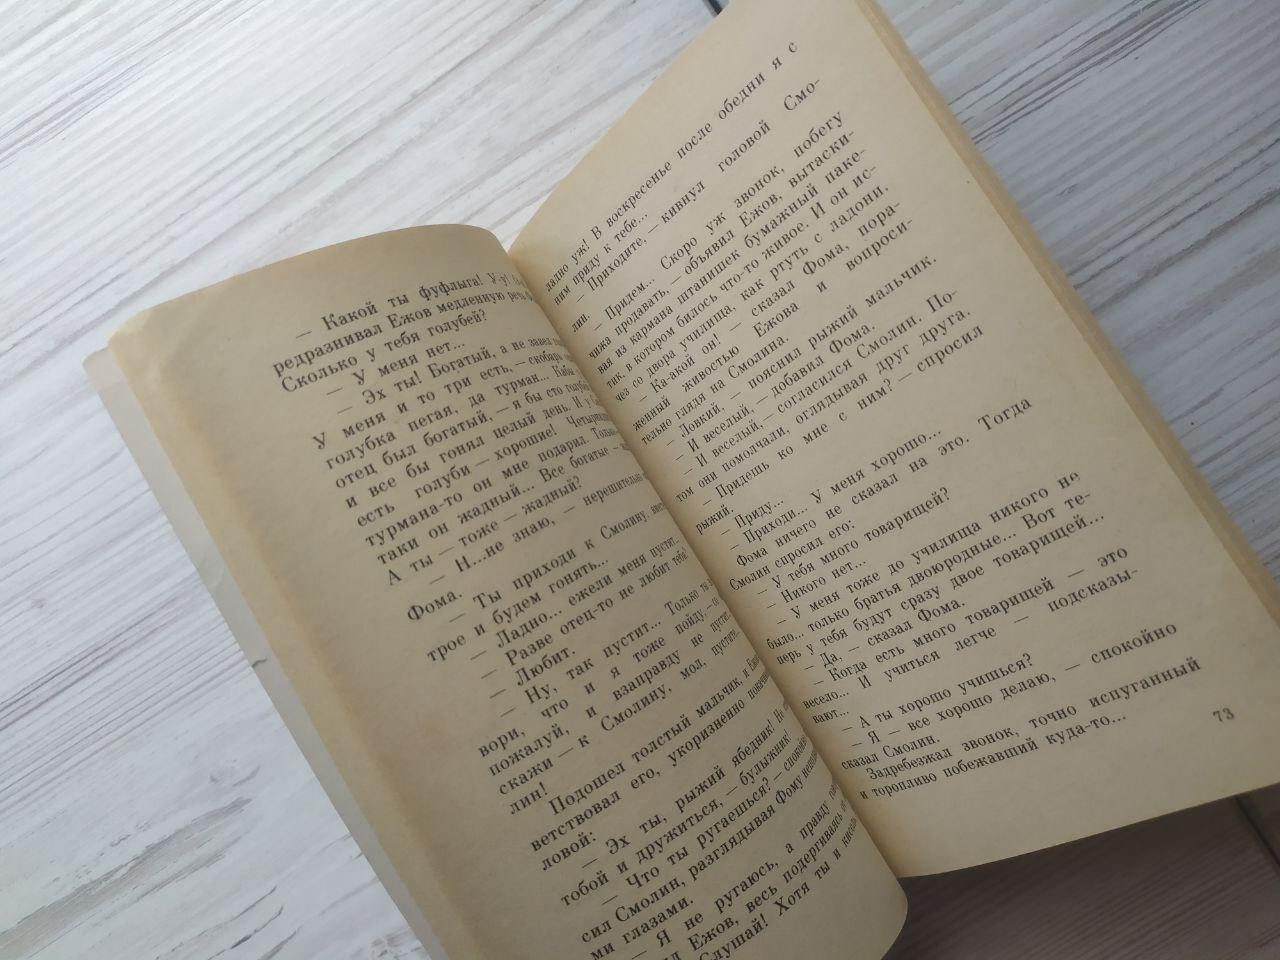 — Какой ты фуфлыга! У-у!
редразнивал Ежов медленную речь
Сколько у тебя голубей?
— У меня нет...
— Эх ты! Богатый, а не завел
У меня и то три есть, — скобарь
голубка пегая, да турман... Кабы
отец был богатый, — я бы сто голубей
и все бы гонял целый день. И у
есть голуби — хорошие! Четырнадцать
турмана-то он мне подарил. Только
таки он жадный... Все богатые —
А ты — тоже — жадный?
— Н...не знаю, — нерешительно
Фома.
— Ты приходи к Смолину,
трое и будем гонять...
— Ладно... ежели меня пустят...
— Разве отец-то не любит тебя?
— Любит.
— Ну, так пустит... Только ты
вори, что и я тоже пойду, —
пожалуй, и взаправду не пустит...
скажи — к Смолину, мол, пустите...
лин!
Подошел толстый мальчик, и Ежов
ветствовал его, укоризненно покачивая
ловой:
— Эх ты, рыжий ябедник! Не
тобой и дружиться, — булыжник!
— Что ты ругаешься? — спокойно
сил Смолин, разглядывая Фому
ми глазами.
— Я не ругаюсь, а правду
Ежов, весь подергиваясь от
Слушай! Хотя ты и кисель
ладно уж! В воскресенье после обедни я с
ним приду к тебе...
— Приходите, — кивнул головой Смо-
лин.
— Придем... Скоро уж звонок, побегу
чижа продавать, — объявил Ежов, вытаски-
вая из кармана штанишек бумажный паке-
тик, в котором билось что-то живое. И он ис-
чез со двора училища, как ртуть с ладони.
— Ка-акой он! — сказал Фома, пора-
женный живостью Ежова и вопроси-
тельно глядя на Смолина.
— Ловкий, — пояснил рыжий мальчик.
— И веселый, — добавил Фома.
— И веселый, — согласился Смолин. По-
том они помолчали, оглядывая друг друга.
— Придешь ко мне с ним? — спросил
рыжий.
— Приду...
— Приходи... У меня хорошо...
Фома ничего не сказал на это. Тогда
Смолин спросил его:
— У тебя много товарищей?
— Никого нет...
— У меня тоже до училища никого не
было... только братья двоюродные... Вот те-
перь у тебя будут сразу двое товарищей...
— Да, — сказал Фома.
— Когда есть много товарищей — это
весело... И учиться легче — подсказы-
вают...
— А ты хорошо учишься?
— Я — все хорошо делаю, — спокойно
сказал Смолин.
Задребезжал звонок, точно испуганный
и торопливо побежавший куда-то...
73